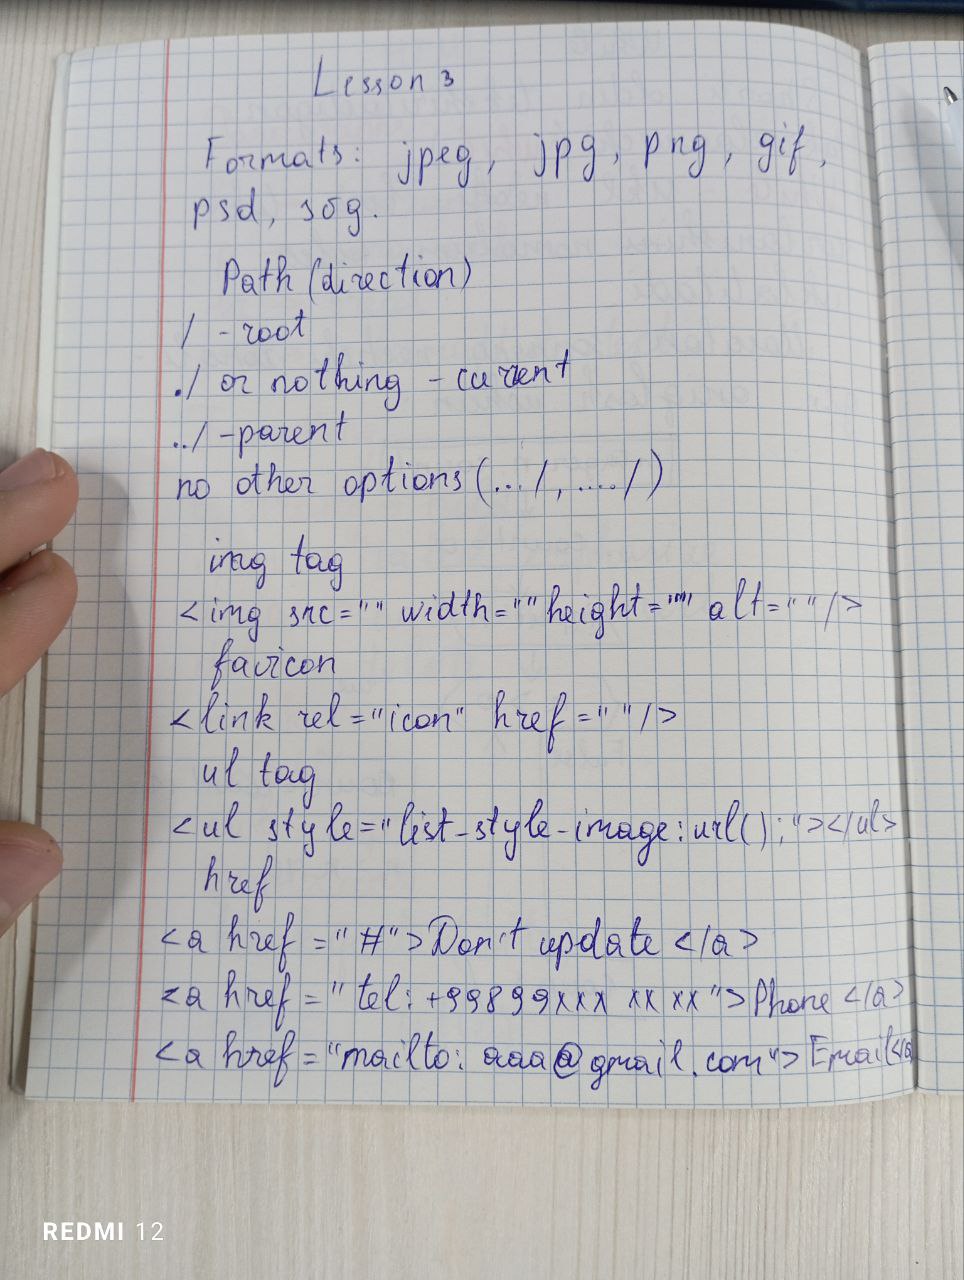 Lesson 3
Formats: jpeg, jpg, png, gif,
psd, svg.
Path (direction)
/ - root
./ or nothing - current
../ - parent
no other options (.../, ..../)
img tag
<img src="" width="" height="" alt="" />
favicon
<link rel="icon" href="" />
ul tag
<ul style="list-style-image: url();"></ul>
href
<a href="#">Don't update</a>
<a href="tel: +99899xxx xx xx">Phone</a>
<a href="mailto: aaa@gmail.com">Email</a
REDMI 12